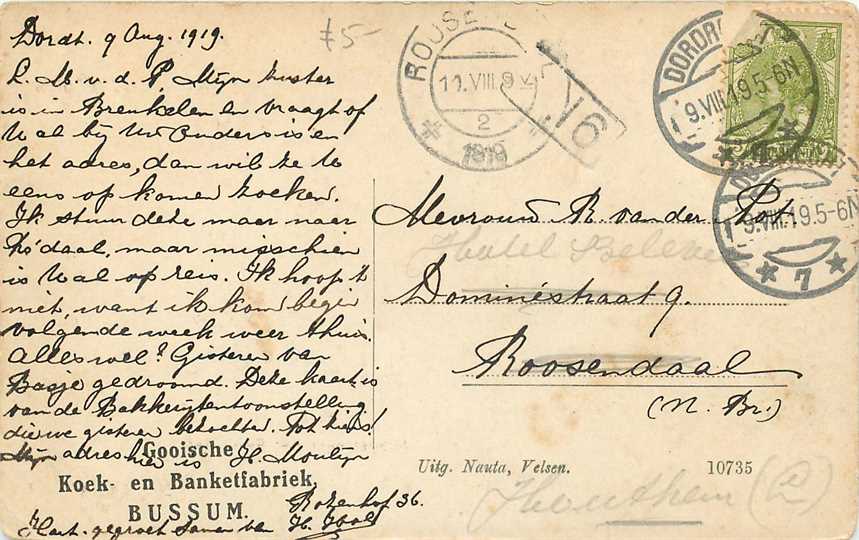 Dordt. 9 Aug. 1919.
L. M. v. d. P. Mijn zuster
is in Breukelen en vraagt of
U al bij Uw ouders is en
het adres, dan wil ze U
eens op komen zoeken.
Ik stuur deze maar naar
Ro'daal, maar misschien
is U al op reis. Ik hoop 't
niet, want ik kom begin
volgende week weer thuis.
Alles wel? Gisteren van
Basje gedroomd. Deze kaart is
van de Bakkerijtentoonstelling
die we gisteren bezochten. Tot ziens!
Mijn adres hier is H.
Rozenhof 36.
Hart. gegroet samen van H.
Gooische
Koek- en Banketfabriek,
BUSSUM.
f 5-
ROOSE
11.VIII.9 V.
2
1919
DORDR
9.VIII.19.5-6N
9.VIII.19.5-6N
7
Mevrouw R. van der Pot.
Hotel
Dominéstraat 9.
Roosendaal
(N. Br.)
Uitg. Nauta, Velsen.
10735
Houthem (L)